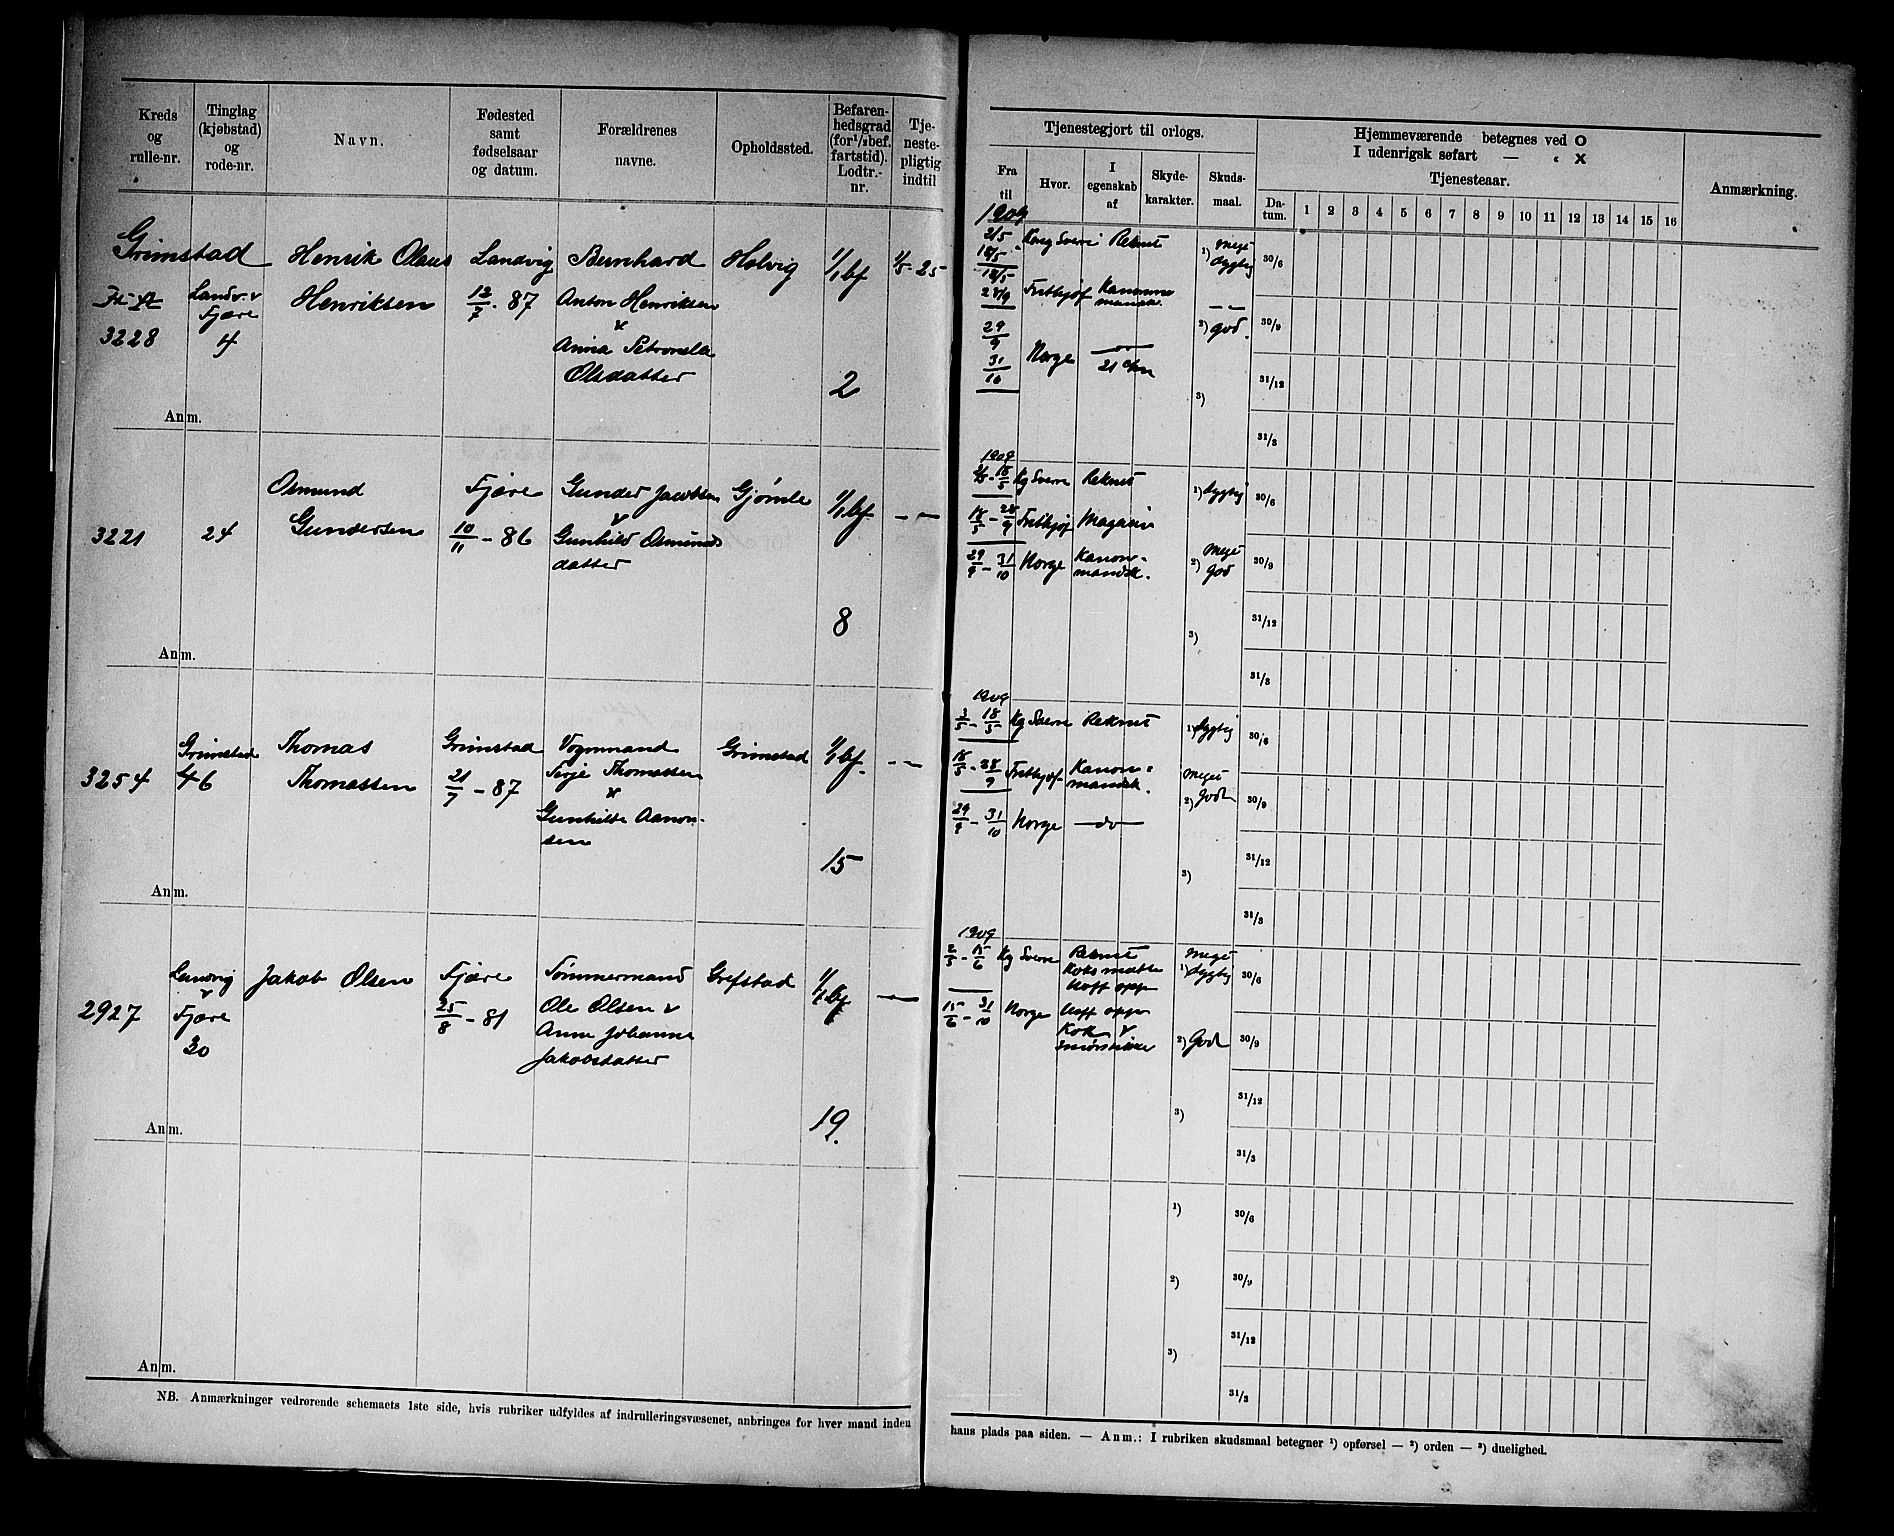 Kreds
og
rulle-nr.
Tinglag
(kjøbstad)
og
rode-nr.
Navn.
Fødested
samt
fødselsaar
og datum.
Forældrenes
navne.
Opholdssted.
Befaren-
hedsgrad
(for 1/2 bef.
fartstid).
Lodtr.-
nr.
Tje-
neste-
pligtig
indtil
Tjenestegjort til orlogs.
Fra
til
Hvor.
I
egenskab
af
Skyde-
karakter.
Skuds-
maal.
Hjemmeværende betegnes ved O
I udenrigsk søfart — " X
Tjenesteaar.
Da-
tum.
1 2 3 4 5 6 7 8 9 10 11 12 13 14 15 16
Anmærkning.
Grimstad
3228
Landv. &
Fjære
4
Henrik Olaus
Henriksen
Landvig
12/7 - 87
Bernhard
Anton Henriksen
&
Anna Petronella
Olsdatter
Holvig
1/1 bf
2
1/5 - 25
1909
2/5
18/5
Kong Sverre
Rekrut
18/5
28/9
Frithjof
Kanon-
mandsk.
29/9
31/10
Norge
—do—
1) Meget
dygtig
2) god.
3)
30/6
30/9
31/12
31/3
Anm.
3221
24
Osmund
Gundersen
Fjære
10/11 - 86
Gunder Jacobsen
&
Gunhild Osmunds
datter
Gjømle
1/1 bf
8
— —
1909
2/5 - 18/5 Kg Sverre Rekrut
18/5 - 28/9 Frithjof Magasin
29/9 - 31/10 Norge Kanon-
mandsk.
1) dygtig
2) Meget
God
3)
30/6
30/9
31/12
31/3
Anm.
3254
Grimstad
46
Thomas
Thomassen
Grimstad
21/7 - 87
Vognmand
Terje Thomassen
&
Gunhilde Aanon-
sen
Grimstad
1/1 bf.
15
— —
1909
3/5 - 18/5 Kg Sverre Rekrut
18/5 - 28/9 Frithjof Kanon-
mandsk.
29/9 - 31/10 Norge —do—
1) dygtig
2) Meget
God
3)
30/6
30/9
31/12
31/3
Anm.
2927
Landvig
&
Fjære
30
Jakob Olsen
Fjære
25/8 - 81
Tømmermand
Ole Olsen &
Anne Johanne
Jakobsdatter
Grefstad
1/1 bf
19.
—
1909
2/5 - 15/6 Kg Sverre Rekrut
Koksmatte
Uoff opp
15/6 - 31/10 Norge Uoff opp
Kok &
1) Meget
dygtig
2) God
3)
30/6
30/9
31/12
31/3
Anm.
1)
2)
3)
30/6
30/9
31/12
31/3
Anm.
NB. Anmærkninger vedrørende schemaets 1ste side, hvis rubriker udfyldes af indrulleringsvæsenet, anbringes for hver mand inden
hans plads paa siden. — Anm.: I rubriken skudsmaal betegner 1) opførsel — 2) orden — 3) duelighed.